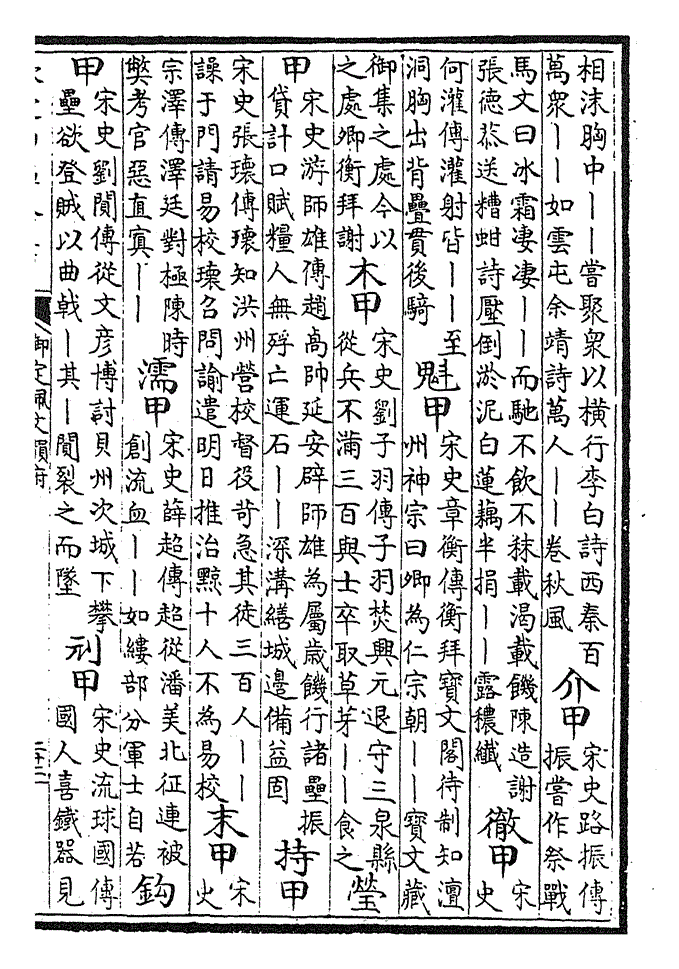 相沫胸中丨丨嘗聚衆以横行李白詩西秦百
萬衆丨丨如雲屯余靖詩萬人丨丨卷秋風
介甲
宋史路振傳
振嘗作祭戰
馬文曰冰霜凄凄丨丨而馳不飲不秣載渴載饑陳造謝
張德恭送糟蚶詩壓倒淤泥白蓮藕半捐丨丨露穠纖
徹甲
宋
史
何灌傳灌射皆丨丨至
洞胸出背疊貫後騎
魁甲
宋史章衡傳衡拜寶文閣待制知澶
州神宗曰卿為仁宗朝丨丨寶文藏
御集之處今以
之處卿衡拜謝
木甲
宋史劉子羽傳子羽焚興元退守三泉縣
從兵不滿三百與士卒取草芽丨丨食之
瑩
甲
宋史游師雄傳趙卨帥延安辟師雄為屬歲饑行諸壘振
貸計口賦糧人無殍亡運石丨丨深溝繕城邊備益固
持甲
宋史張瓌傳瓌知洪州營校督役苛急其徒三百人丨丨
譟于門請易校瓌召問諭遣明日推治黥十人不為易校
末甲
宋
史
宗澤傳澤廷對極陳時
弊考官惡直寘丨丨
濡甲
宋史薛超傳超從潘美北征連被
創流血丨丨如縷部分軍士自若
鈎
甲
宋史劉閴傳從文彥博討貝州次城下攀
壘欲登賊以曲戟丨其丨閴裂之而墜
刓甲
宋史流球國傳
國人喜鐵器見
御定佩文韻府